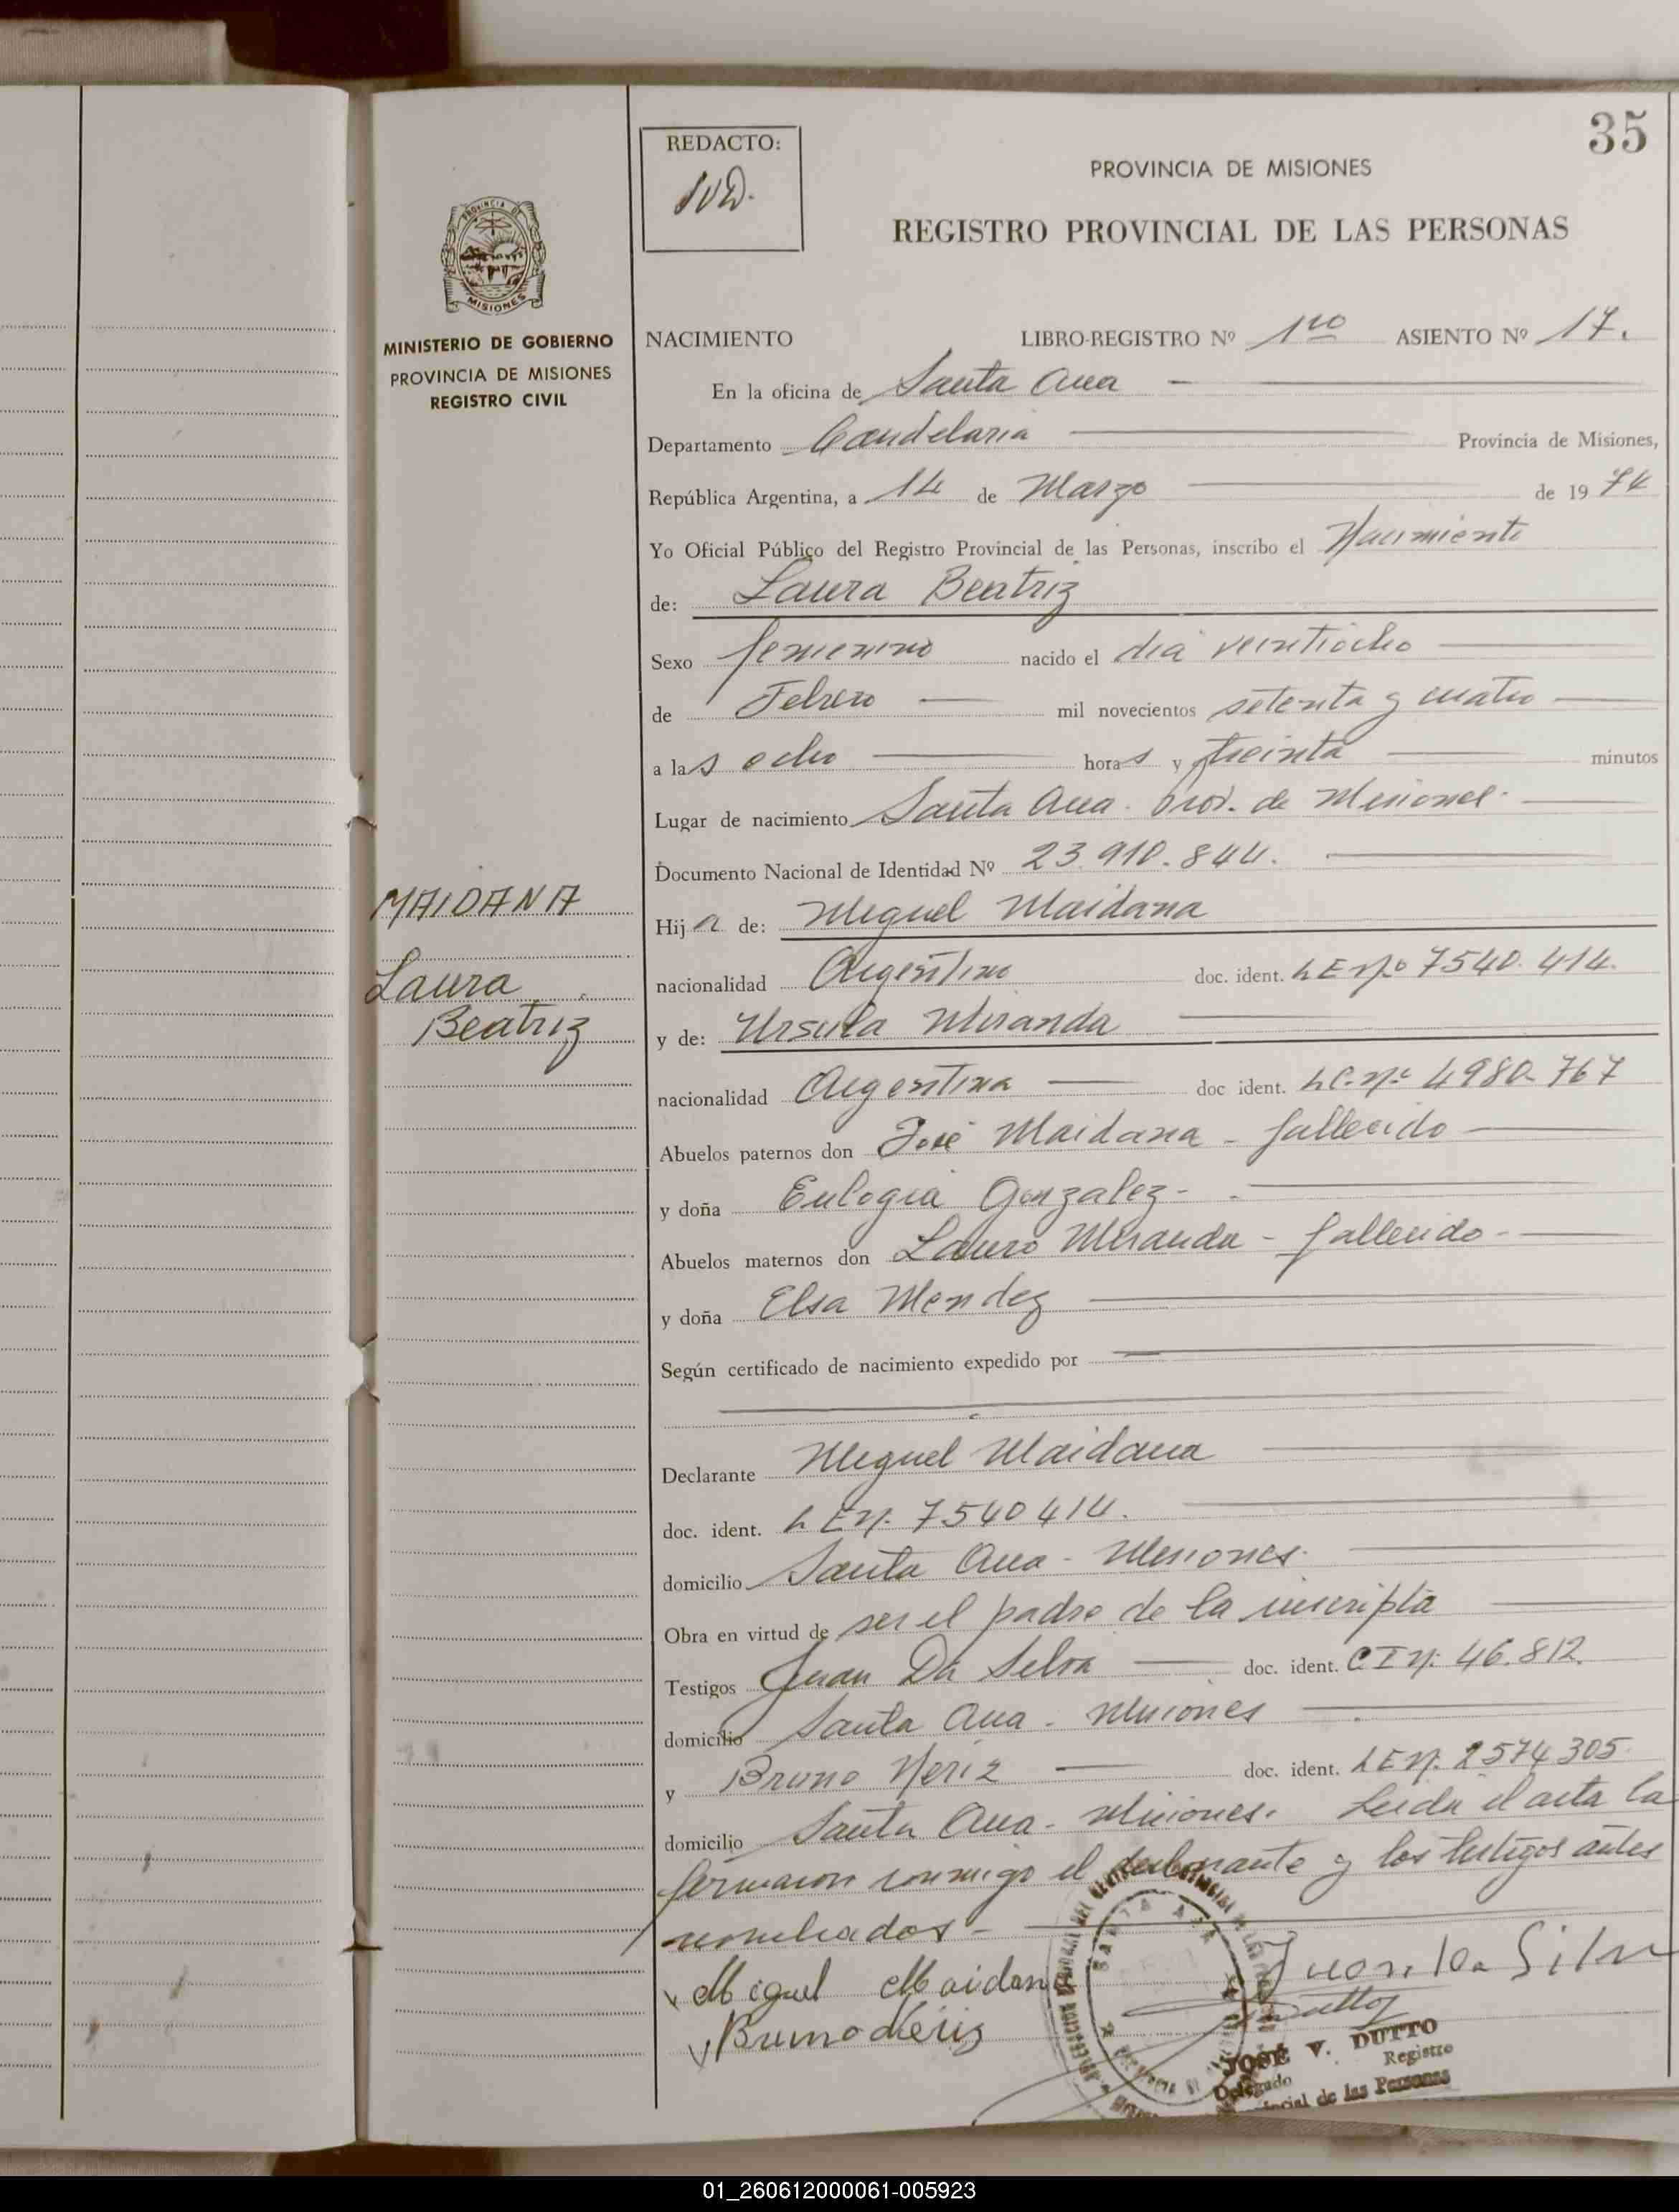 35
REDACTO:
JVD.
PROVINCIA DE MISIONES
REGISTRO PROVINCIAL DE LAS PERSONAS
MISIONES
MINISTERIO DE GOBIERNO
PROVINCIA DE MISIONES
REGISTRO CIVIL
NACIMIENTO LIBRO-REGISTRO Nº 1ro ASIENTO Nº 17.
En la oficina de Santa Ana
Departamento Candelaria Provincia de Misiones,
República Argentina, a 14 de Marzo de 1974
Yo Oficial Público del Registro Provincial de las Personas, inscribo el Nacimiento
de: Laura Beatriz
Sexo femenino nacido el dia veintiocho
de Febrero mil novecientos setenta y cuatro
a las ocho horas y treinta minutos
Lugar de nacimiento Santa Ana. Prov. de Misiones.
Documento Nacional de Identidad Nº 23.910.844.
MAIDANA
Laura
Beatriz
Hija de: Miguel Maidana
nacionalidad Argentino doc. ident. LE Nº 7540.414.
y de: Ursula Miranda
nacionalidad Argentina doc ident. LC. Nº 4980.767
Abuelos paternos don José Maidana - fallecido
y doña Eulogia Gonzalez -
Abuelos maternos don Lauro Miranda - fallecido -
y doña Elsa Mendez
Según certificado de nacimiento expedido por
Declarante Miguel Maidana
doc. ident. L E N. 7540414.
domicilio Santa Ana - Misiones.
Obra en virtud de ser el padre de la inscripta
Testigos Juan Da Silva doc. ident. C I N: 46.812.
domicilio Santa Ana - Misiones
y Bruno Neriz doc. ident. L E N. 2574305.
domicilio Santa Ana - Misiones. Leida el acta la
firmaron conmigo el declarante y los testigos antes
nombrados -
Miguel Maidana
Juon. Da Silv
Bruno Neriz
SANTA ANA
JOSÉ V. DUTTO
Delegado Registro
de las Personas
01_260612000061-005923